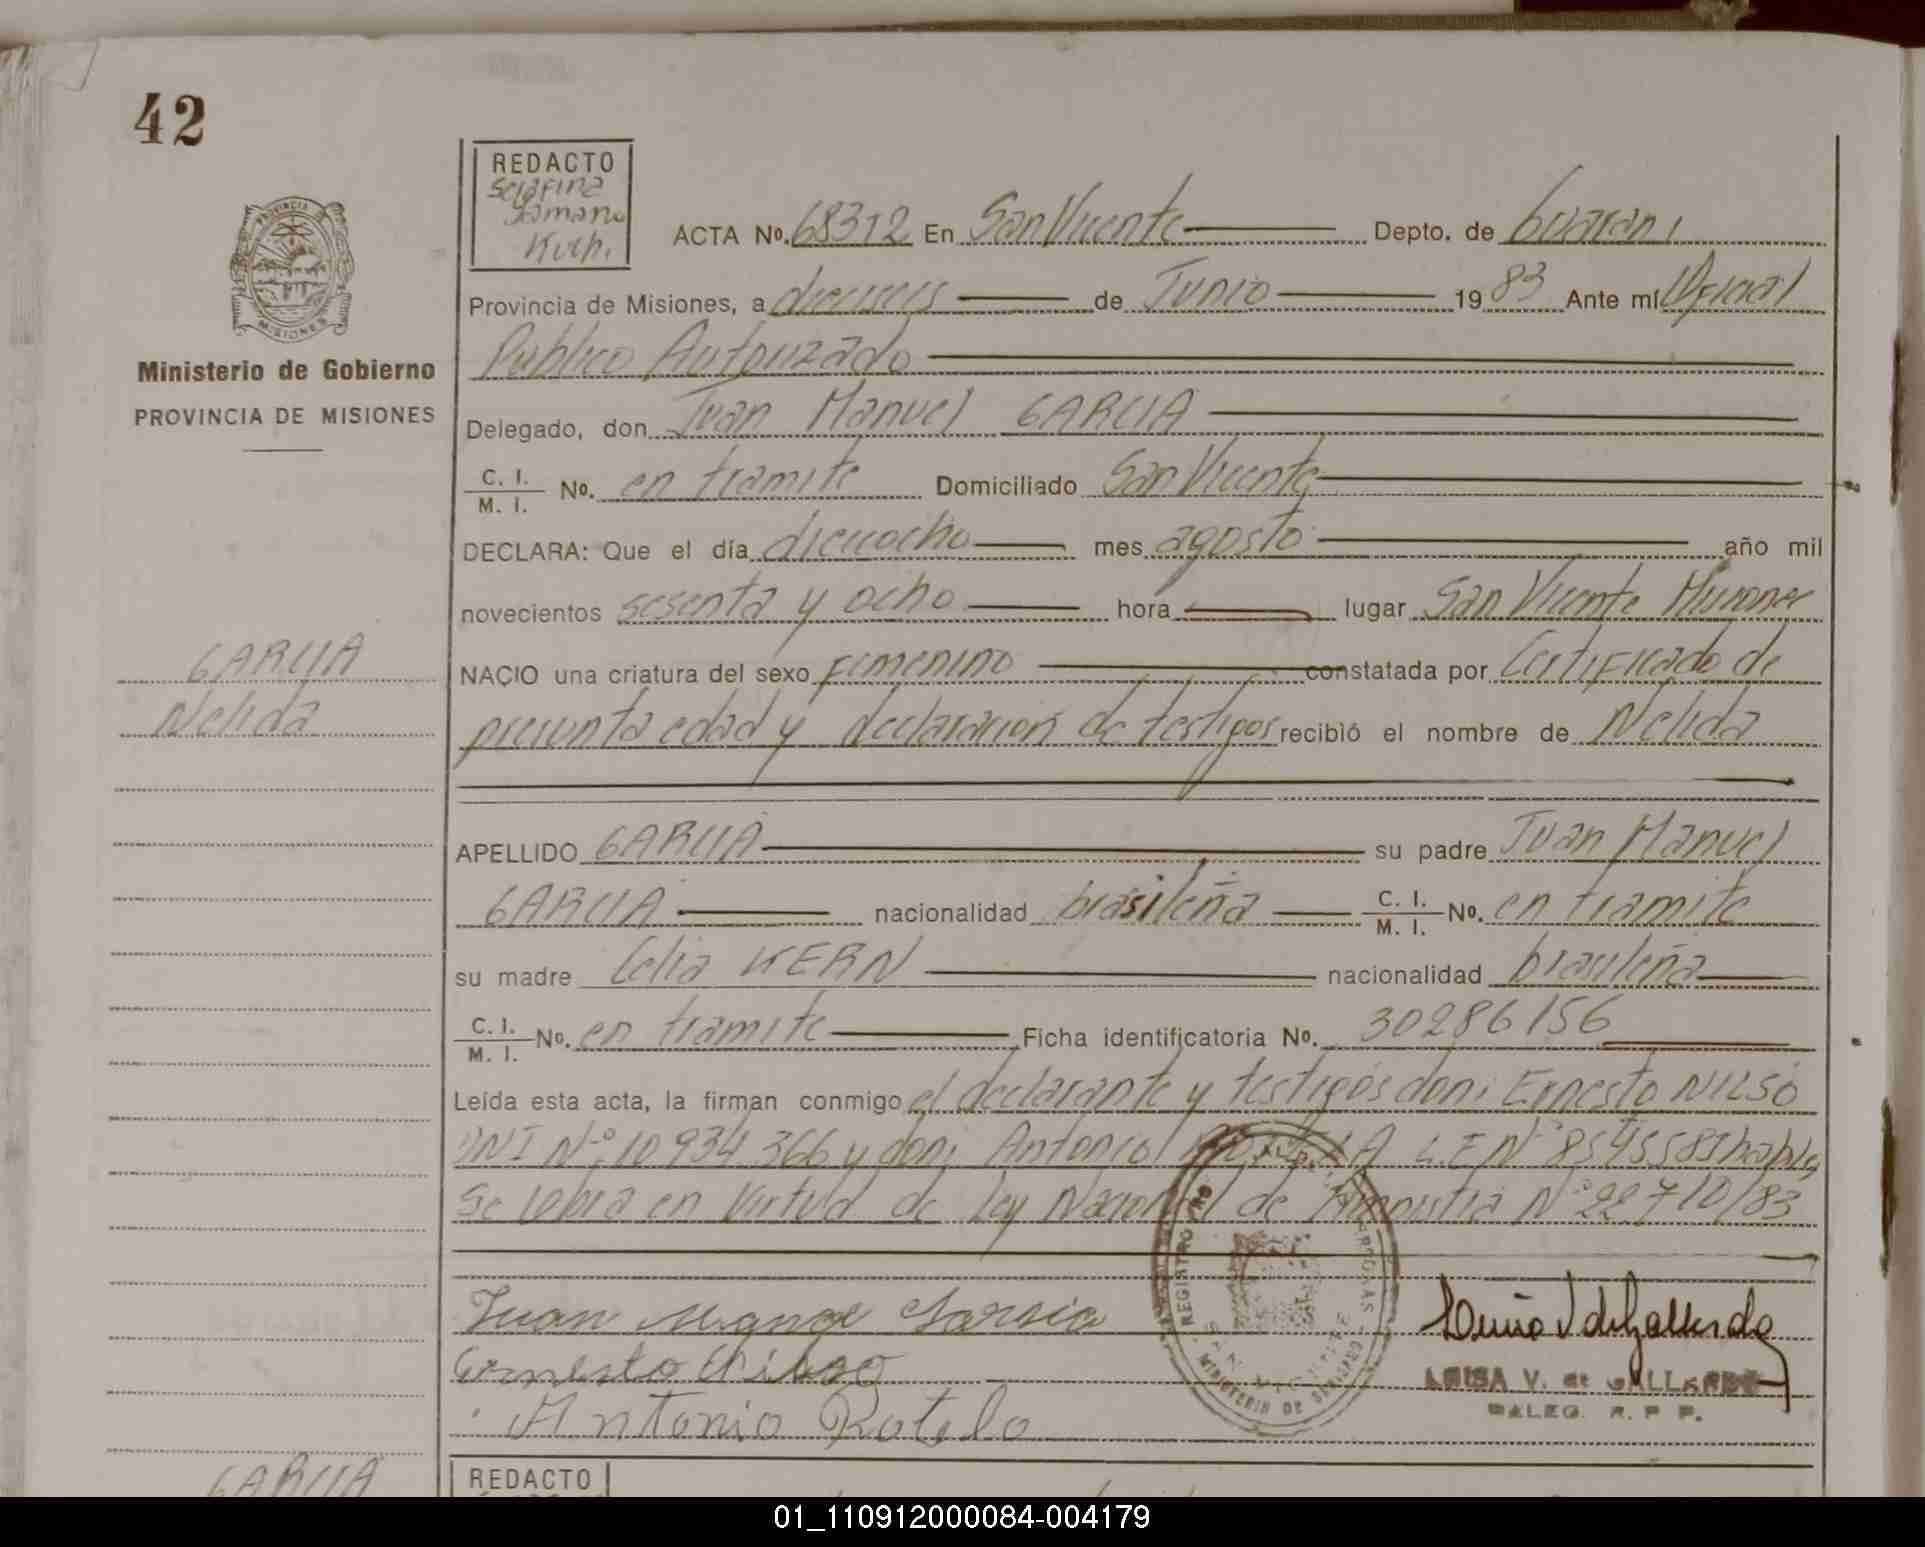 42
REDACTO
Serafina
Kuch.
ACTA No. 68312 En San Vicente Depto. de Guarani
Provincia de Misiones, a dieciseis de Junio 1983 Ante mí Oficial
Publico Autorizado
Ministerio de Gobierno
PROVINCIA DE MISIONES
Delegado, don Juan Manuel GARCIA
C. I. / M. I. No. en tramite Domiciliado San Vicente
DECLARA: Que el día dieciocho mes agosto año mil
novecientos sesenta y ocho hora lugar San Vicente Misiones
GARCIA
NACIO una criatura del sexo femenino constatada por Certificado de
Nelida
presunta edad y declaracion de testigos recibió el nombre de Nelida
APELLIDO GARCIA su padre Juan Manuel
GARCIA nacionalidad brasileña C. I. / M. I. No. en tramite
su madre Celia KERN nacionalidad brasileña
C. I. / M. I. No. en tramite Ficha identificatoria No. 30286156
Leída esta acta, la firman conmigo el declarante y testigos don: Ernesto NILSO
DNI Nº 10934.366 y don: Antonio L.E Nº
se labra en virtud de Ley Nacional de Amnistia Nº 22710/83
Juan Manuel Garcia
Ernesto Nilso
Antonio Rotela
LUISA V. de GALLARDO
DALEG. R. P. P.
GARCIA
REDACTO
01_110912000084-004179